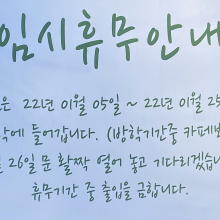 임시휴무안내
은 22년 01월 05일 ~ 22년 01월 25
에 들어갑니다. (방학기간중 카페
26일 문 활짝 열어 놓고 기다리겠습니
휴무기간 중 출입을 금합니다.